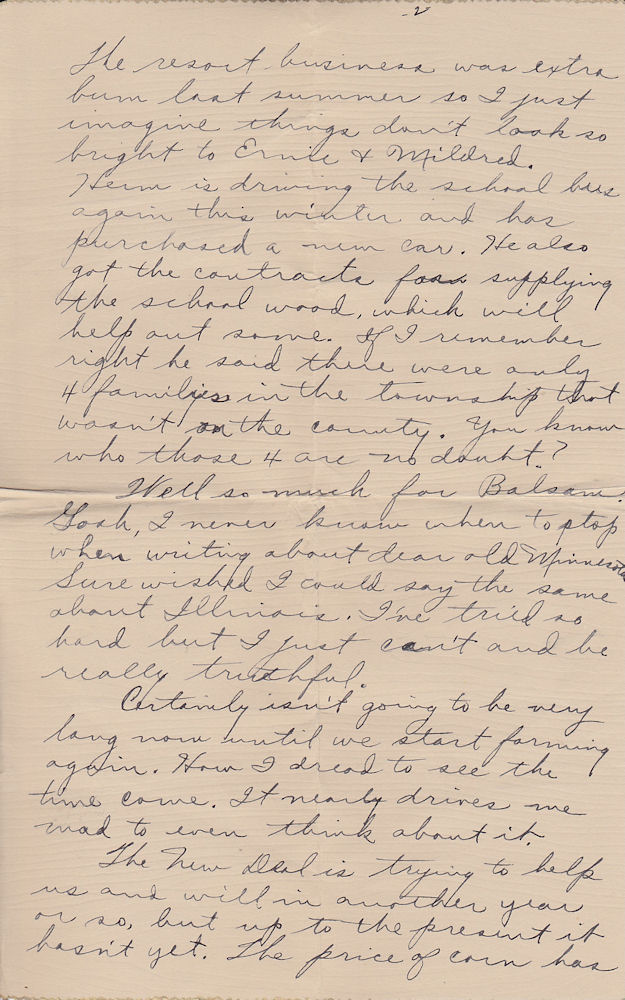 -2
The resort business was extra
bum last summer so I just
imagine things don't look so
bright to Ernie & Mildred.
Herm is driving the school bus
again this winter and has
purchased a new car. He also
got the contracts for supplying
the school wood, which will
help out some. If I remember
right he said there were only
4 families in the township that
wasn't on the county. You know
who those 4 are no doubt?
Well so much for Balsam.
Gosh, I never know when to stop
when writing about dear old Minnesota
Sure wished I could say the same
about Illinois. I've tried so
hard but I just can't and be
really truthful.
Certainly isn't going to be very
long now until we start farming
again. How I dread to see the
time come. It nearly drives me
mad to even think about it.
The New Deal is trying to help
us and will in another year
or so, but up to the present it
hasn't yet. The price of corn has